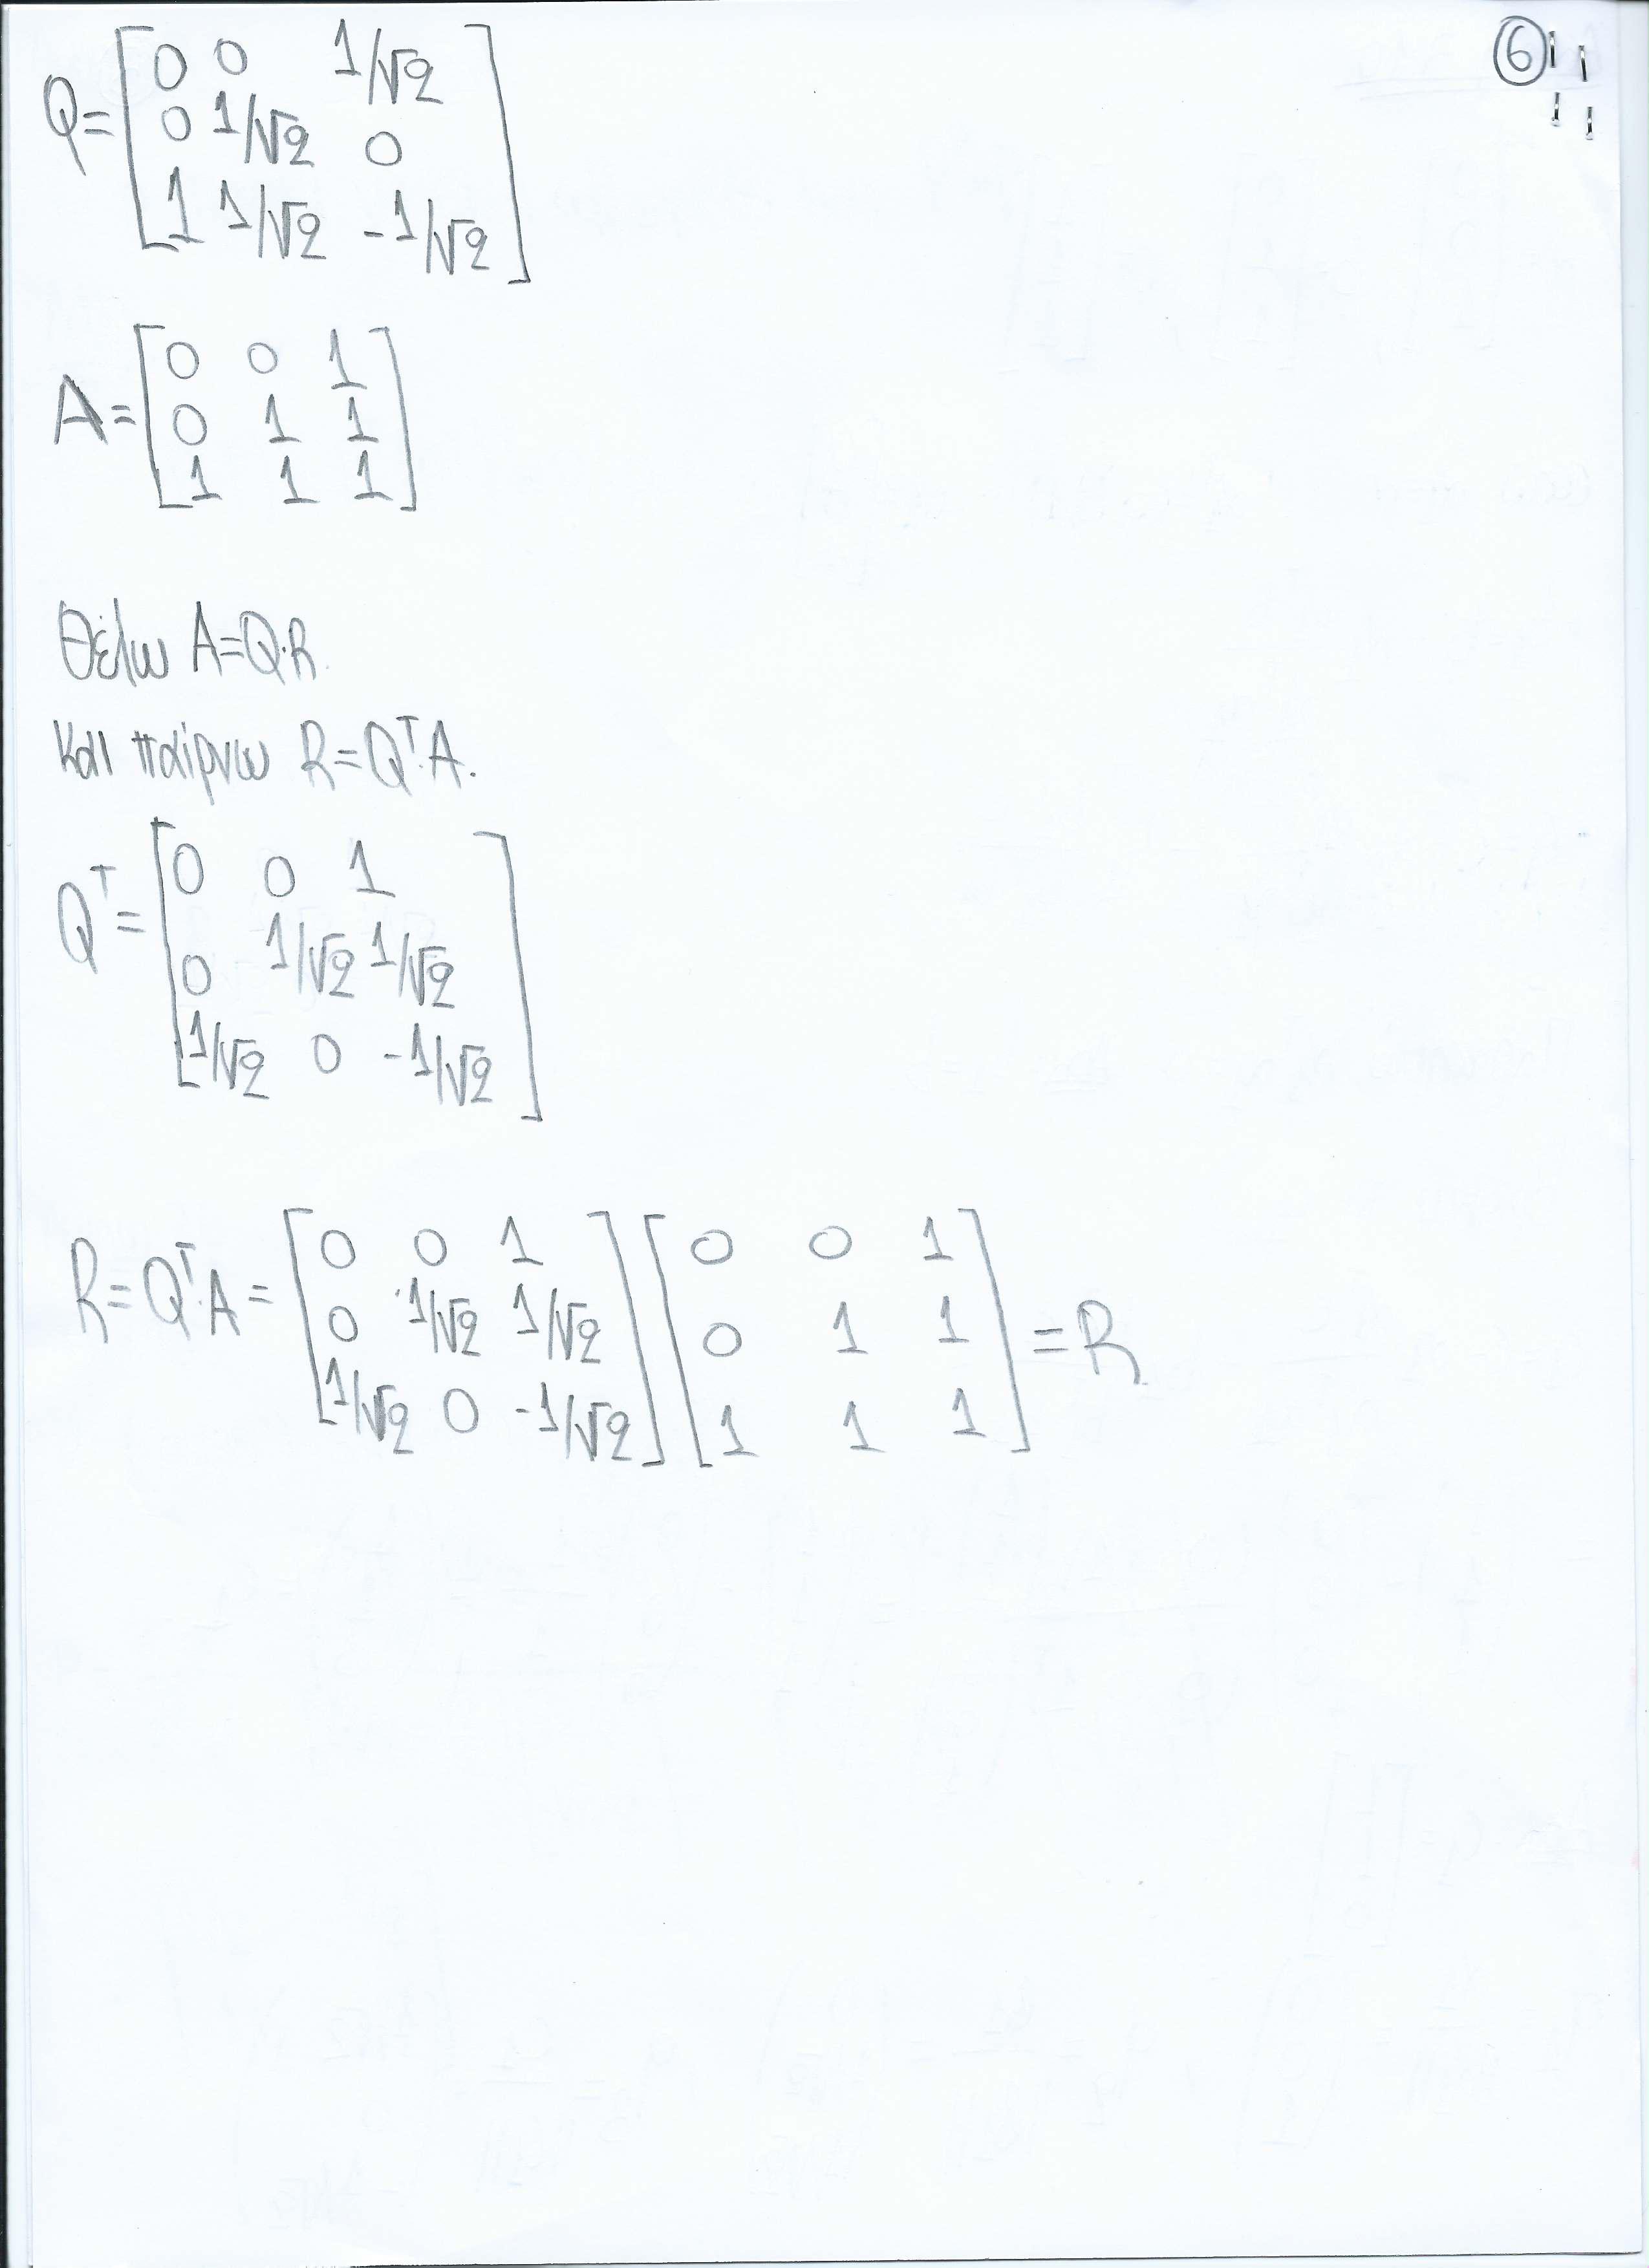 ⑥
Q= [ 0 0 1/√2
0 1/√2 0
1 1/√2 -1/√2 ]
A= [ 0 0 1
0 1 1
1 1 1 ]
Θέλω A=Q·R.
Και παίρνω R=Qᵀ·A.
Qᵀ= [ 0 0 1
0 1/√2 1/√2
1/√2 0 -1/√2 ]
R=Qᵀ·A= [ 0 0 1 ] [ 0 0 1 ]
[ 0 1/√2 1/√2 ] [ 0 1 1 ] =R.
[ 1/√2 0 -1/√2 ] [ 1 1 1 ]